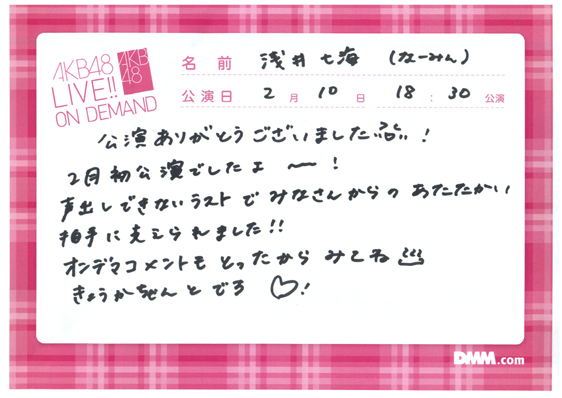 AKB48
LIVE!!
ON DEMAND
AKB
48
名前 浅井七海 (なーみん)
公演日 2月10日 18:30公演
公演ありがとうございました !
2月初公演でしたよ〜!
声出しできないラストでみなさんからのあたたかい
拍手に支えられました!!
オンデマコメントもとったからみてね
きょうかちゃんとでろ ♡!
DMM.com